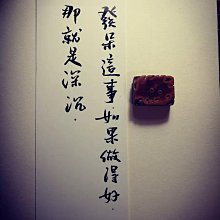 發呆這事,如果做得好,
那就是深沉.